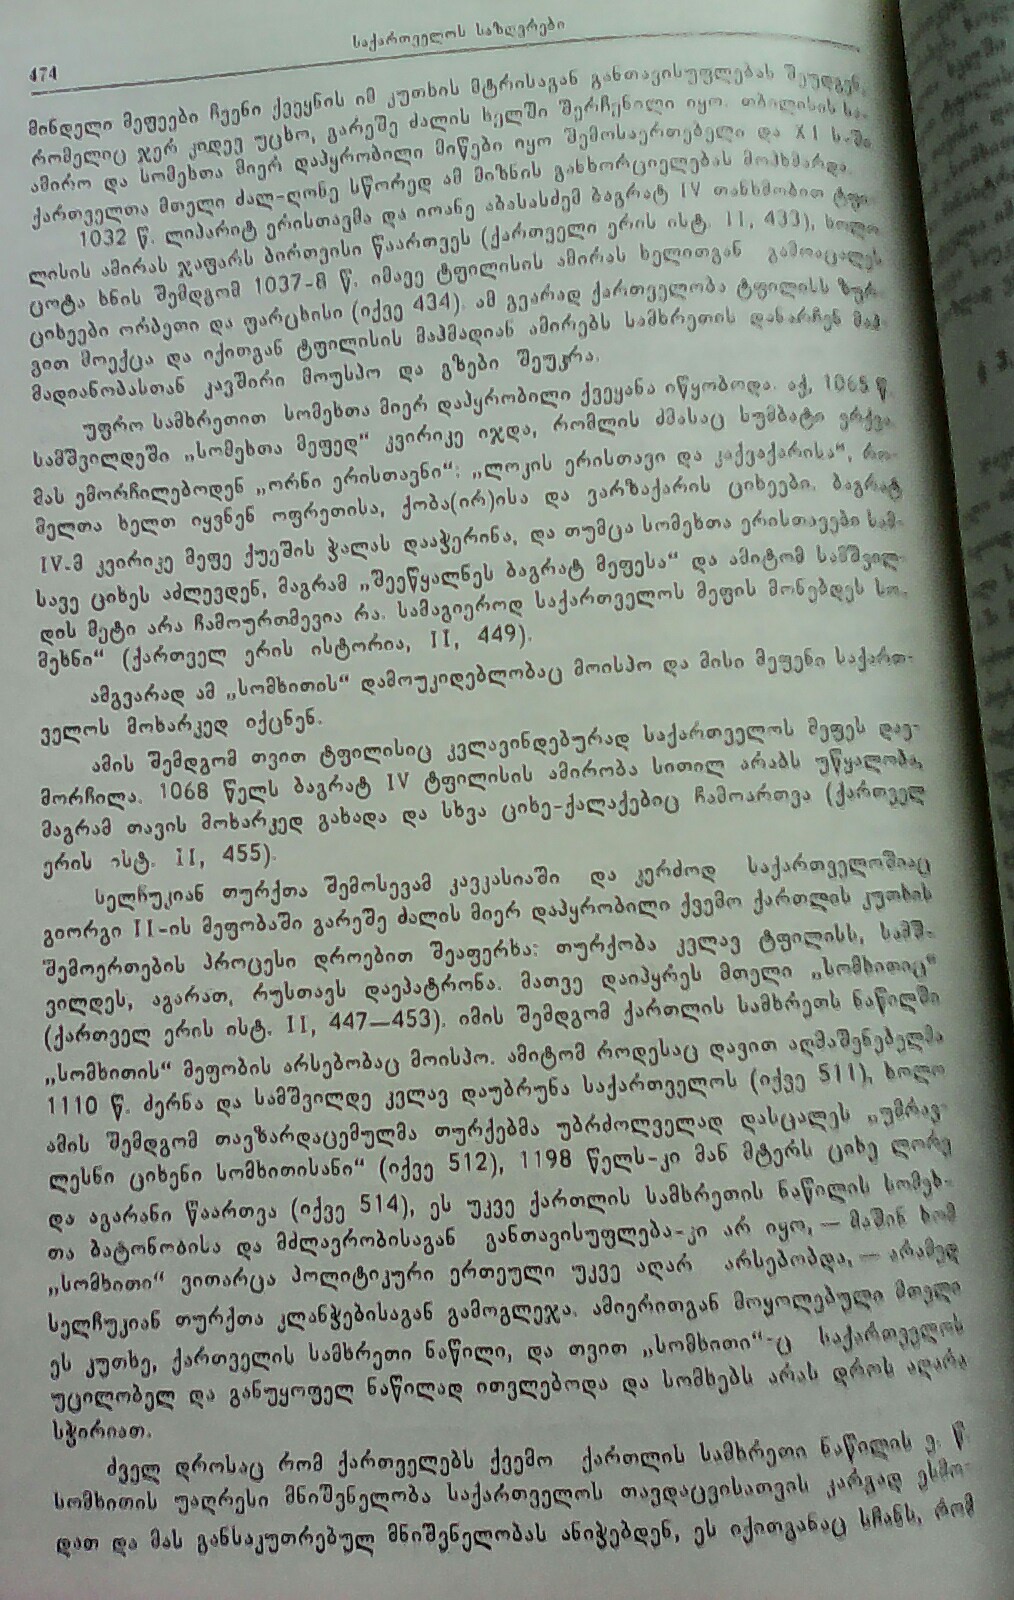 საქართველოს საზღვრები
474
მინდელი მეფეები ჩვენი ქვეყნის იმ კუთხის მტრისაგან განთავისუფლებას შეუდგენ,
რომელიც ჯერ კიდევ უცხო, გარეშე ძალის ხელში შერჩენილი იყო. თბილისის სა-
ამირო და სომეხთა მიერ დაპყრობილი მიწები იყო შემოსაერთებელი და XI ს-ში
ქართველთა მთელი ძალ-ღონე სწორედ ამ მიზნის განხორციელებას მოჰხმარდა.
1032 წ. ლიპარიტ ერისთავმა და იოანე აბასასძემ ბაგრატ IV თანხმობით ტფი-
ლისის ამირას ჯაფარს ბირთვისი წაართვეს (ქართველი ერის ისტ. II, 433), ხოლო
ცოტა ხნის შემდგომ 1037-8 წ. იმავე ტფილისის ამირას ხელითგან გამოაცალეს
ციხეები ორბეთი და ფარცხისი (იქვე 434). ამ გვარად ქართველობა ტფილისს ზურ-
გით მოექცა და იქითგან ტფილისის მაჰმადიან ამირებს სამხრეთის დანარჩენ მაჰ-
მადიანობასთან კავშირი მოუსპო და გზები შეუკრა.
უფრო სამხრეთით სომეხთა მიერ დაპყრობილი ქვეყანა იწყობოდა. აქ, 1065 წ.
სამშვილდეში „სომეხთა მეფედ“ კვირიკე იჯდა, რომლის ძმასაც სუმბატი ერქვა.
მას ემორჩილებოდენ „ორნი ერისთავნი“: „ლოკის ერისთავი და კაქვაქარისა“, რო-
მელთა ხელთ იყვნენ ოფრეთისა, ქობა(ირ)ისა და ვარზაქარის ციხეები. ბაგრატ
IV-მ კვირიკე მეფე ქუეშის ჭალას დააჭერინა, და თუმცა სომეხთა ერისთავები სამ-
სავე ციხეს აძლევდენ, მაგრამ „შეეწყალნეს ბაგრატ მეფესა“ და ამიტომ სამშვილ-
დის მეტი არა ჩამოურთმევია რა. სამაგიეროდ საქართველოს მეფის მონებდეს სო-
მეხნი“ (ქართველ ერის ისტორია, II, 449).
ამგვარად ამ „სომხითის“ დამოუკიდებლობაც მოისპო და მისი მეფენი საქართ-
ველოს მოხარკედ იქცნენ.
ამის შემდგომ თვით ტფილისიც კვლავინდებურად საქართველოს მეფეს დაე-
მორჩილა. 1068 წელს ბაგრატ IV ტფილისის ამირობა სითილ არაბს უწყალობა,
მაგრამ თავის მოხარკედ გახადა და სხვა ციხე-ქალაქებიც ჩამოართვა (ქართველ
ერის ისტ. II, 455).
სელჩუკიან თურქთა შემოსევამ კავკასიაში და კერძოდ საქართველოშიაც
გიორგი II-ის მეფობაში გარეშე ძალის მიერ დაპყრობილი ქვემო ქართლის კუთხის
შემოერთების პროცესი დროებით შეაფერხა: თურქობა კვლავ ტფილისს, სამშ-
ვილდეს, აგარათ, რუსთავს დაეპატრონა. მათვე დაიპყრეს მთელი „სომხითიც“
(ქართველ ერის ისტ. II, 447—453). იმის შემდგომ ქართლის სამხრეთს ნაწილში
„სომხითის“ მეფობის არსებობაც მოისპო. ამიტომ როდესაც დავით აღმაშენებელმა
1110 წ. ძერნა და სამშვილდე კვლავ დაუბრუნა საქართველოს (იქვე 511), ხოლო
ამის შემდგომ თავზარდაცემულმა თურქებმა უბრძოლველად დასცალეს „უმრავ-
ლესნი ციხენი სომხითისანი“ (იქვე 512), 1198 წელს-კი მან მტერს ციხე ლორე
და აგარანი წაართვა (იქვე 514), ეს უკვე ქართლის სამხრეთის ნაწილის სომეხ-
თა ბატონობისა და მძლავრობისაგან განთავისუფლება-კი არ იყო, — მაშინ ხომ
„სომხითი“ ვითარცა პოლიტიკური ერთეული უკვე აღარ არსებობდა, — არამედ
სელჩუკიან თურქთა კლანჭებისაგან გამოგლეჯა. ამიერითგან მოყოლებული მთელი
ეს კუთხე, ქართველის სამხრეთი ნაწილი, და თვით „სომხითი“-ც საქართველოს
უცილობელ და განუყოფელ ნაწილად ითვლებოდა და სომხებს არას დროს აღარა
სჭირიათ.
ძველ დროსაც რომ ქართველებს ქვემო ქართლის სამხრეთი ნაწილის ე. წ.
სომხითის უაღრესი მნიშვნელობა საქართველოს თავდაცვისათვის კარგად ესმო-
დათ და მას განსაკუთრებულ მნიშვნელობას ანიჭებდენ, ეს იქითგანაც სჩანს, რომ